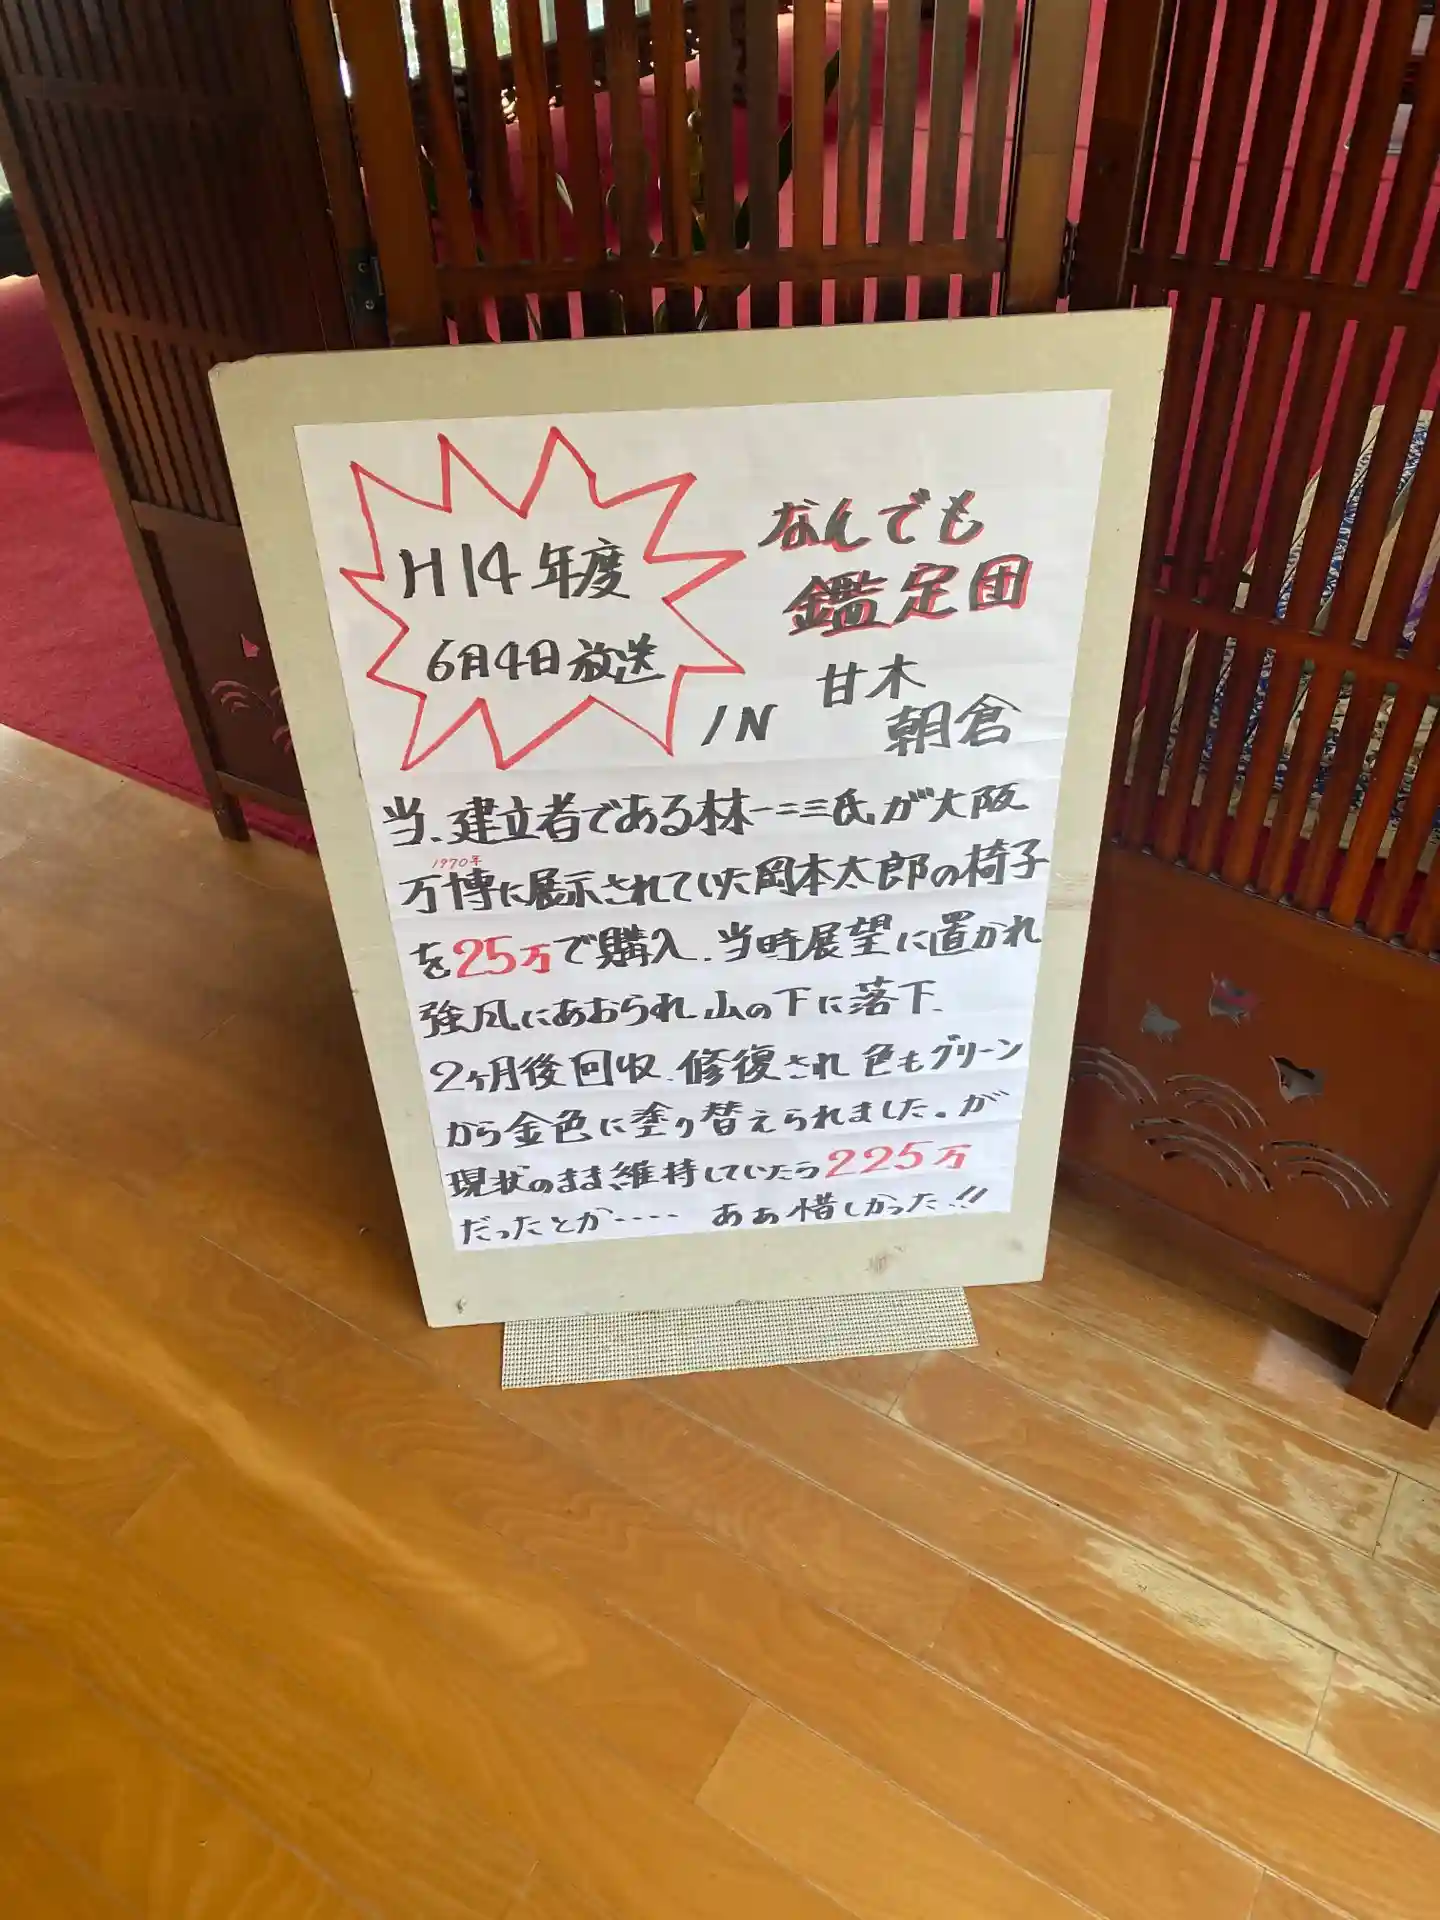 H14年度
6月4日放送
なんでも
鑑定団
IN
甘木
朝倉
当、建立者である林一二三氏が大阪
1970年
万博に展示されていた岡本太郎の椅子
を25万で購入、当時展望に置かれ
強風にあおられ山の下に落下、
2ヶ月後回収、修復され色もグリーン
から金色に塗り替えられました。が
現状のまま維持していたら225万
だったとか・・・・ あぁ惜しかった!!